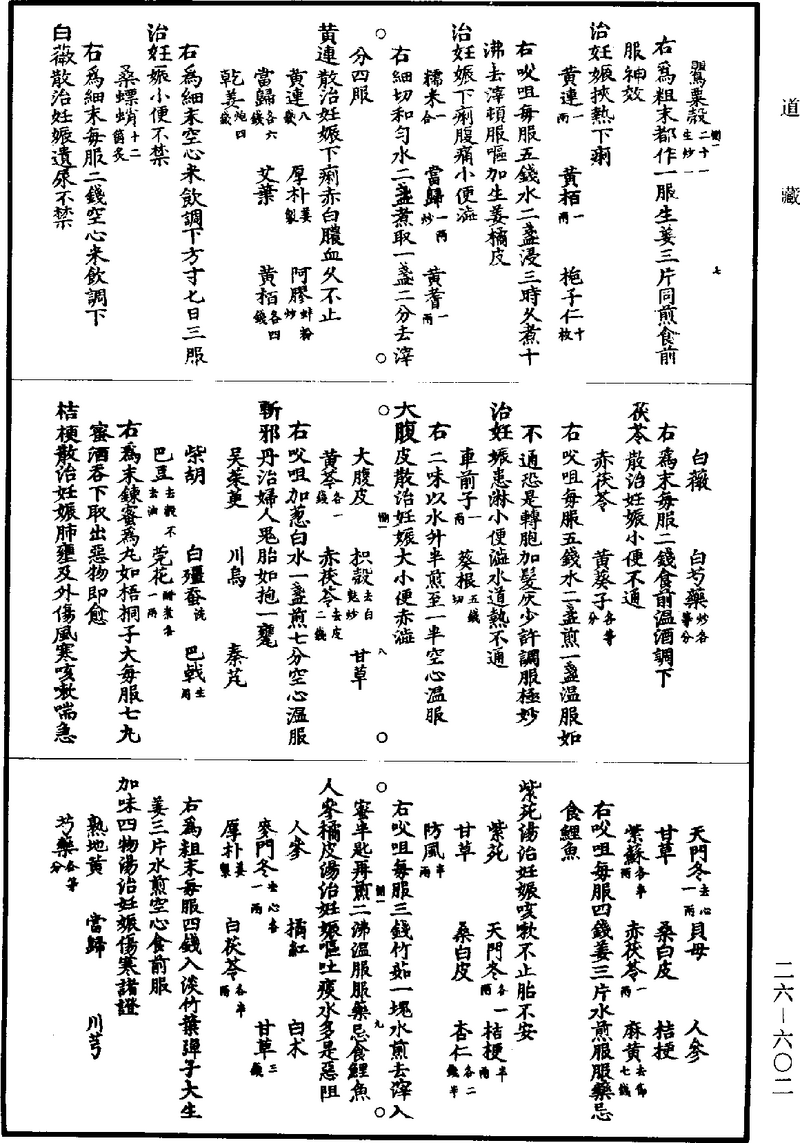 道藏
罌粟殼二十一生炒一
右爲粗末都作一服生姜三片同煎食前
服神效
治妊娠挾熱下痢
黄連一兩 黄栢一兩 梔子仁十枚
右㕮咀每服五錢水二盞浸三時久煮十
沸去滓頓服嘔加生姜橘皮
治妊娠下痢腹痛小便澁
糯米一合 當歸一兩炒 黄耆一兩
右細切和勻水二盞煮取一盞二分去滓
分四服
黄連散治妊娠下痢赤白膿血久不止
黄連八錢 厚朴姜製 阿膠蚌粉炒
當歸各六錢 艾葉 黄栢各四錢
乾姜炮四錢
右爲細末空心米飲調下方寸七日三服
治妊娠小便不禁
桑螵蛸十二箇炙
右爲細末每服二錢空心米飲調下
白薇散治妊娠遺尿不禁
白薇 白芍藥炒各等分
右爲末每服二錢食前温酒調下
茯苓散治妊娠小便不通
赤茯苓 黄葵子各等分
右㕮咀每服五錢水二盞煎一盞温服如
不通恐是轉胞加髮灰少許調服極妙
治妊娠患淋小便澁水道熱不通
車前子一兩 葵根五錢切
右二味以水升半煎至一半空心温服
大腹皮散治妊娠大小便赤澁
大腹皮 枳殼去白麩炒 甘草
黄芩各一錢 赤茯苓去皮二錢
右㕮咀加葱白水一盞煎七分空心温服
斬邪丹治婦人鬼胎如抱一甕
吴茱萸 川烏 秦芃
柴胡 白殭蚕洗 巴戟生用
巴豆去殼不去油 芫花醋煮各一兩
右爲末鍊蜜爲丸如梧桐子大每服七丸
蜜酒吞下取出惡物即愈
桔梗散治妊娠肺壅及外傷風寒咳嗽喘急
天門冬去心一兩 貝母 人參
甘草 桑白皮 桔梗
紫蘇各半兩 赤茯苓一兩 麻黄去節七錢
右㕮咀每服四錢姜三片水煎服服藥忌
食鯉魚
紫苑湯治妊娠咳嗽不止胎不安
紫苑 天門冬各一兩 桔梗半兩
甘草 桑白皮 杏仁各二錢半
防風半兩
右㕮咀每服三錢竹茹一塊水煎去滓入
蜜半匙再煎二沸温服服藥忌食鯉魚
人參橘皮湯治妊娠嘔吐痰水多是惡阻
人參 橘紅 白术
麥門冬去心各一兩 白茯苓各半兩 甘草三錢
厚朴姜製
右爲粗末每服四錢入淡竹葉彈子大生
姜三片水煎空心食前服
加味四物湯治妊娠傷寒諸證
熟地黄 當歸 川芎
芍藥各等分
二六—六〇二